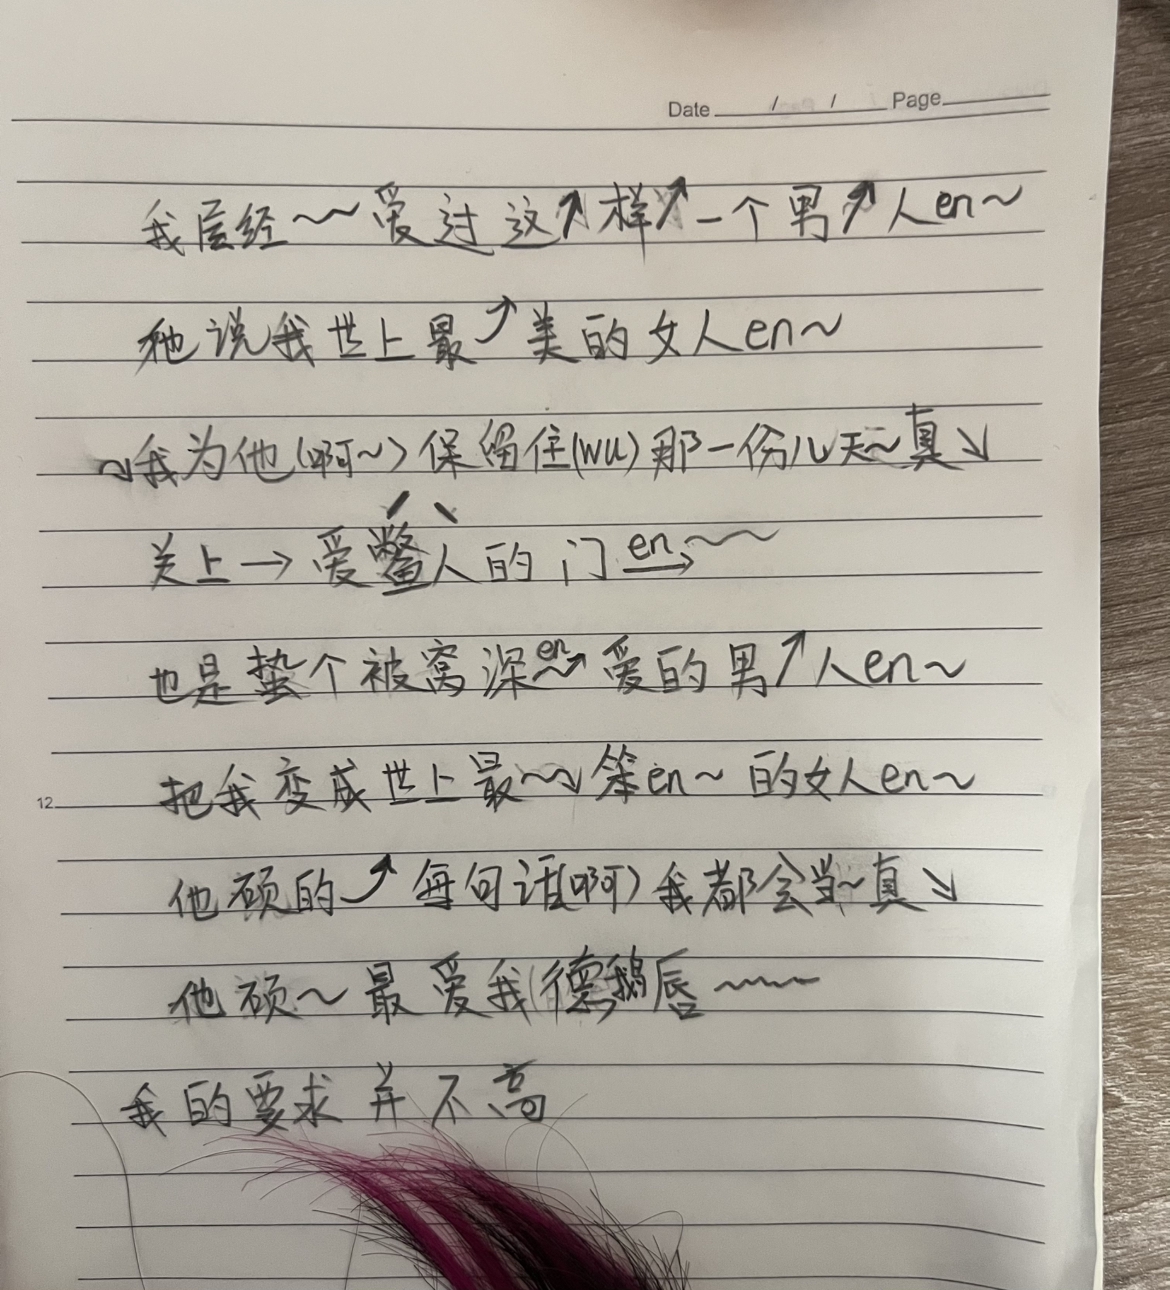 Date / / Page
我层经~~爱过这↗样↗一个男↗人en~
他说我世上最↗美的女人en~
~我为他(啊~)保留住(wu)那一份儿天~真↘
关上→爱鳖人的门en→~~
也是蛰个被窝深en~→爱的男↗人en~
12 把我变成世上最~↘笨en~的女人en~
他硕的↗每句话(啊)我都会当~真↘
他硕~最爱我(德鹅唇~~~
我的要求并不高